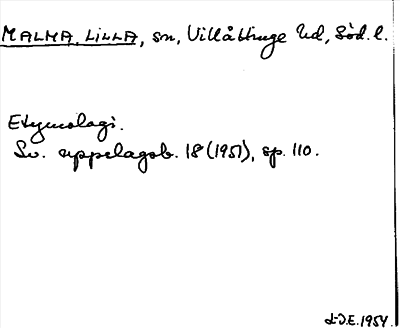 MALMA, LILLA, sn, Villåttinge hd, Söd. l.
Etymologi.
Sv. uppslagsb. 18 (1951), sp. 110.
L-J.E. 1954.